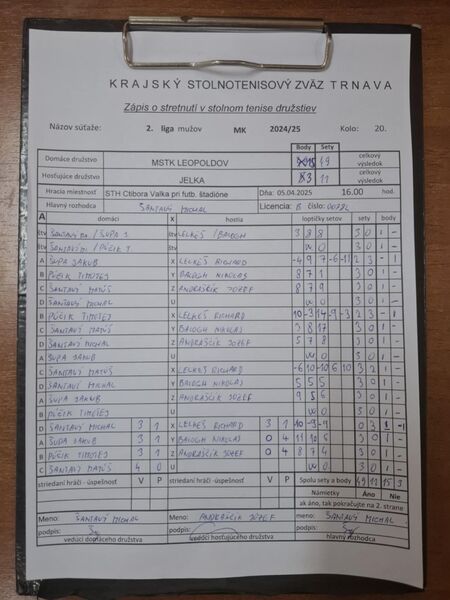 KRAJSKÝ STOLNOTENISOVÝ ZVÄZ TRNAVA
Zápis o stretnutí v stolnom tenise družstiev
Názov súťaže: 2. liga mužov MK 2024/25 Kolo: 20.
Body Sety
Domáce družstvo MSTK LEOPOLDOV 15 49 celkový výsledok
Hosťujúce družstvo JELKA 3 11 celkový výsledok
Hracia miestnosť STH Ctibora Valka pri futb. štadióne Dňa: 05.04.2025 16.00 hod.
Hlavný rozhodca ŠANTAVÝ MICHAL Licencia: B číslo:
A domáci X hostia loptičky setov sety body
štv ŠANTAVÝ M. / ŠUPA J. štv LELKÉŠ / BALOGH 3 8 8 3 0 1 -
štv ŠANTAVÝ M. / PÚČIK T. štv WO 3 0 1 -
A ŠUPA JAKUB X LELKÉŠ RICHARD -4 9 7 -6 -11 2 3 - 1
B PÚČIK TIMOTEJ Y BALOGH NIKOLAS 8 7 1 3 0 1 -
C ŠANTAVÝ MATÚŠ Z ANDRAŠČÍK JOZEF 8 7 9 3 0 1 -
D ŠANTAVÝ MICHAL U WO 3 0 1 -
B PÚČIK TIMOTEJ X LELKÉŠ RICHARD 10 -3 14 -9 -3 2 3 - 1
C ŠANTAVÝ MATÚŠ Y BALOGH NIKOLAS 3 8 17 3 0 1 -
D ŠANTAVÝ MICHAL Z ANDRAŠČÍK JOZEF 5 7 8 3 0 1 -
A ŠUPA JAKUB U WO 3 0 1 -
C ŠANTAVÝ MATÚŠ X LELKÉŠ RICHARD -6 10 -6 6 10 3 2 1 -
D ŠANTAVÝ MICHAL Y BALOGH NIKOLAS 5 5 5 3 0 1 -
A ŠUPA JAKUB Z ANDRAŠČÍK JOZEF 9 5 6 3 0 1 -
B PÚČIK TIMOTEJ U WO 3 0 1 -
D ŠANTAVÝ MICHAL 3 1 X LELKÉŠ RICHARD 3 1 0 3
A ŠUPA JAKUB 3 1 Y BALOGH NIKOLAS 0 4 11 10 6 3 0 1 -
B PÚČIK TIMOTEJ 3 1 Z ANDRAŠČÍK JOZEF 0 4 8 7 4 3 0 1 -
C ŠANTAVÝ MATÚŠ 4 0 U WO 3 0 1 -
striedaní hráči - úspešnosť V P striedaní hráči - úspešnosť V P Spolu sety a body 49 11 15 3
Námietky Áno Nie
ak áno, tak pokračujte na 2. strane
Meno: ŠANTAVÝ MICHAL Meno: ANDRAŠČÍK JOZEF meno: ŠANTAVÝ MICHAL
podpis: podpis: podpis:
vedúci domáceho družstva vedúci hosťujúceho družstva hlavný rozhodca